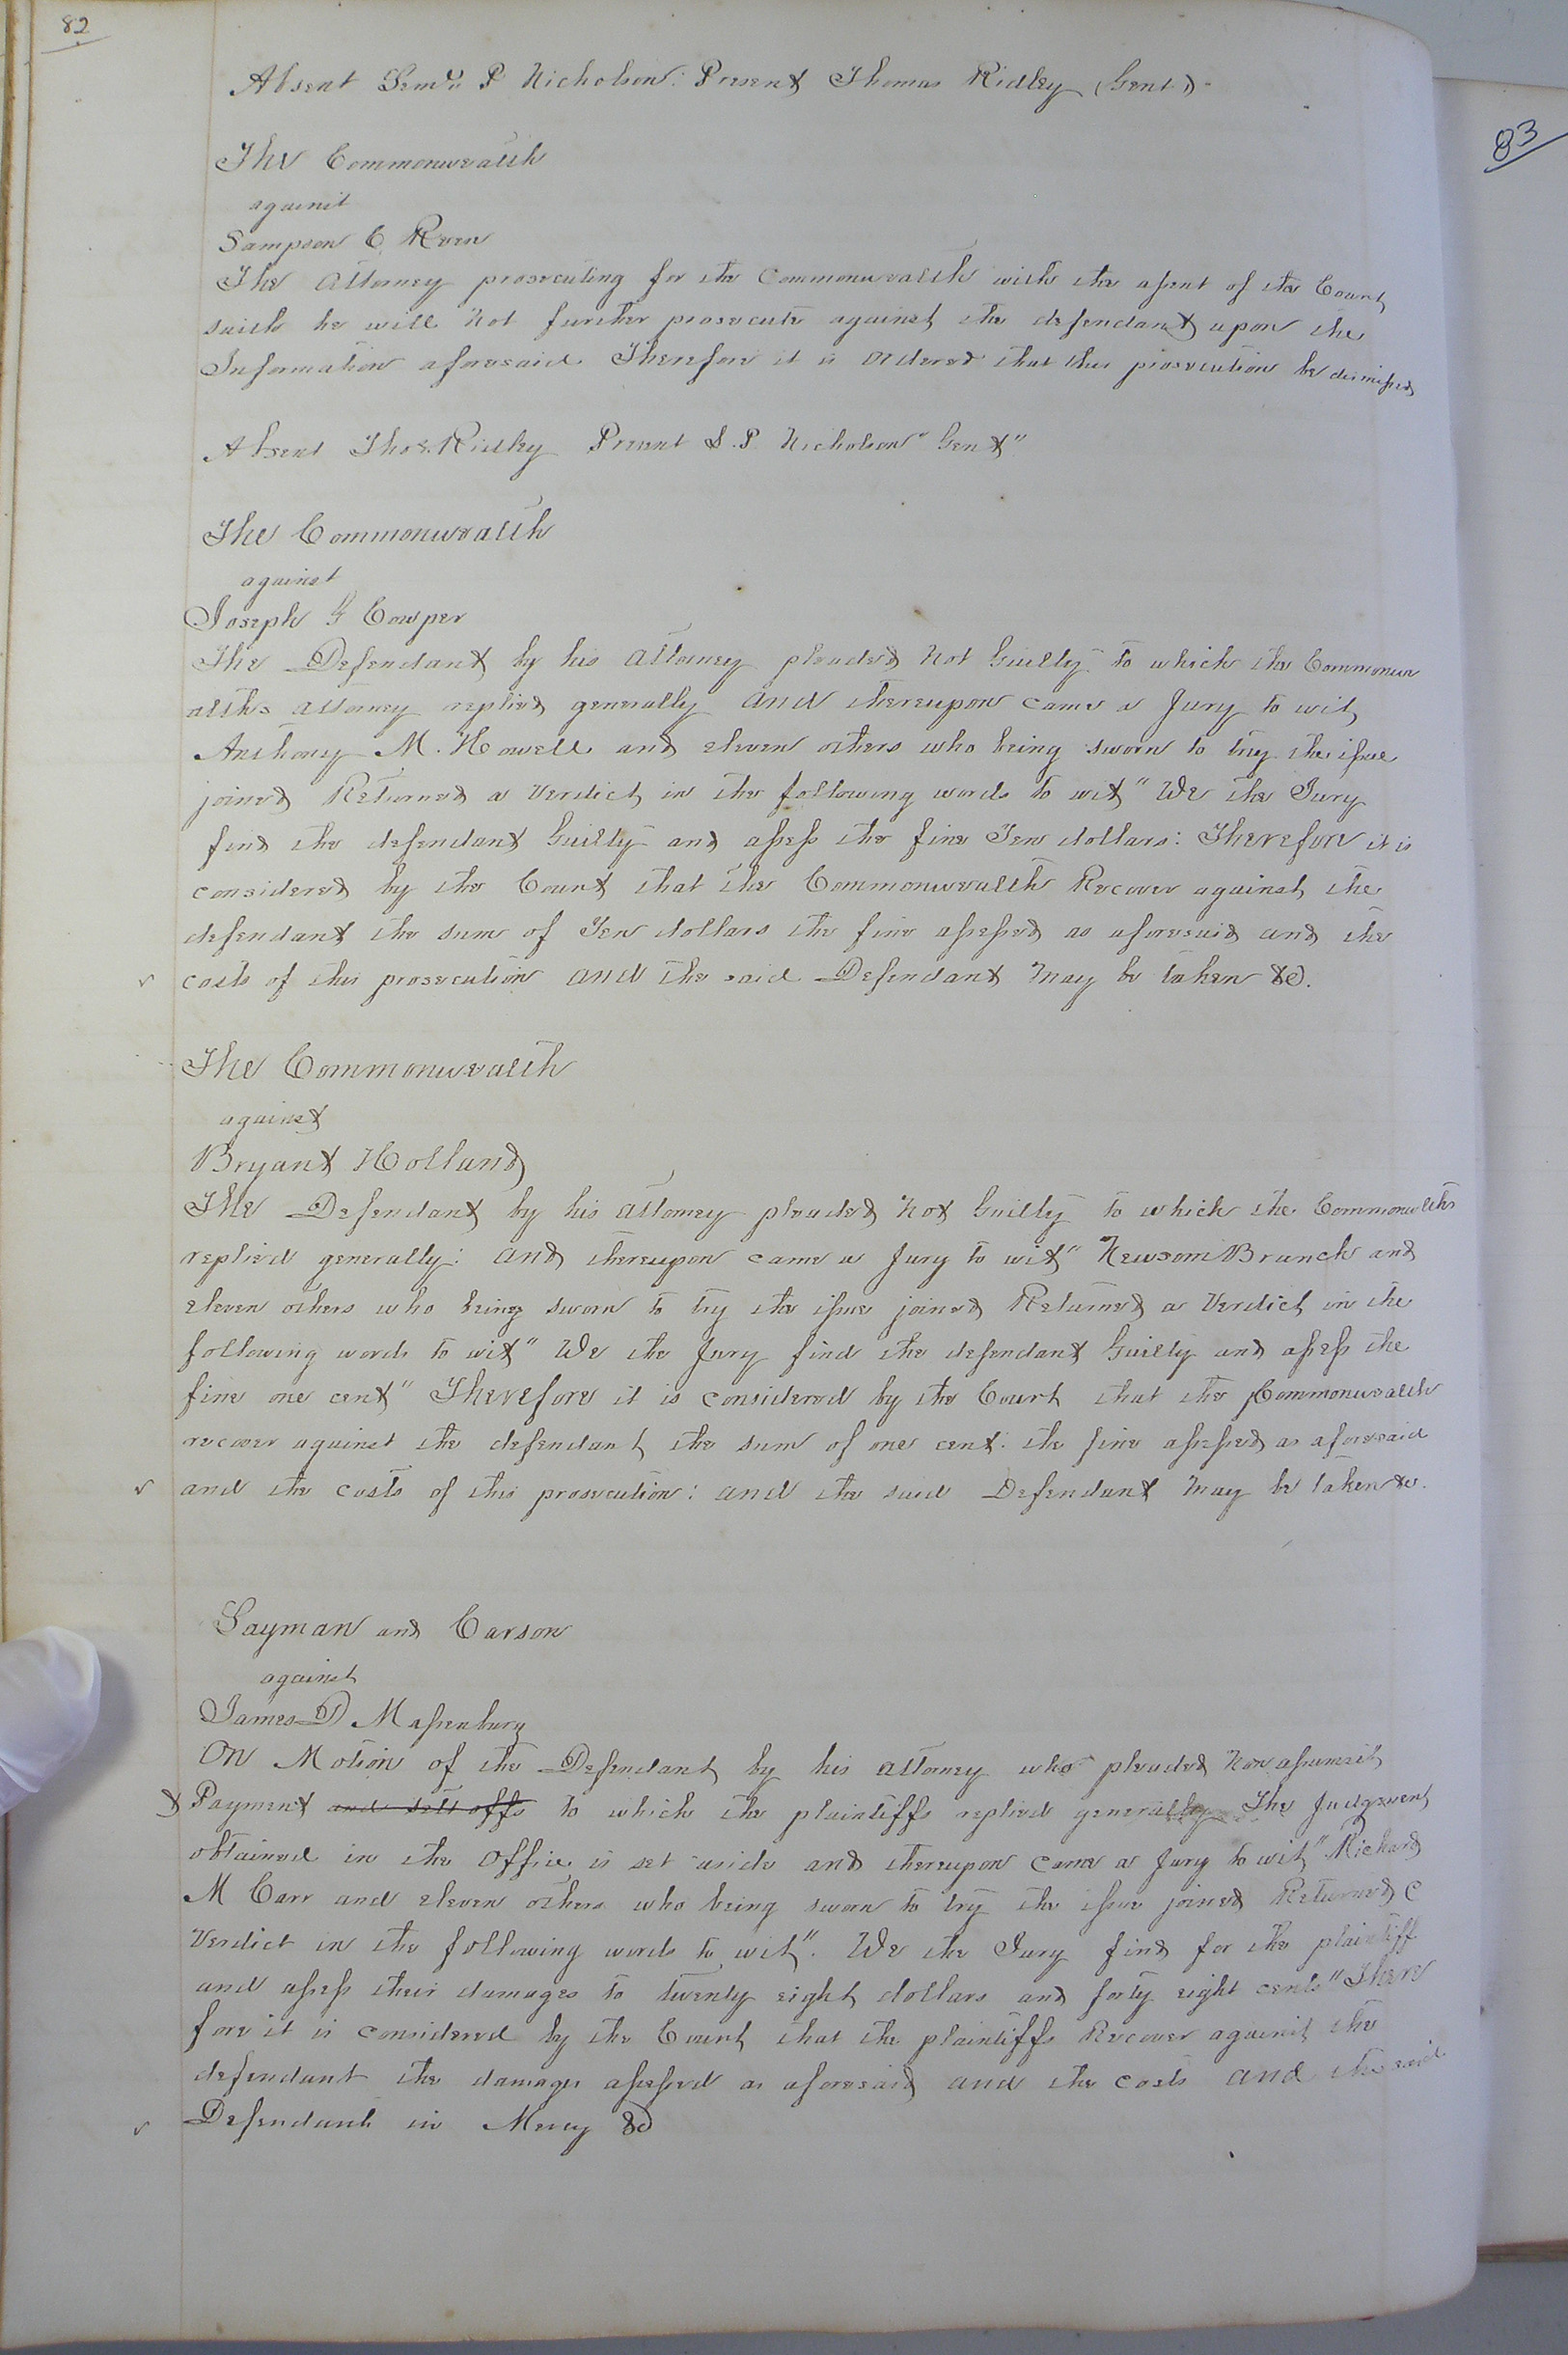 82
Absent Sam<sup>l</sup> P Nicholson: Present Thomas Ridley (Gent)
The Commonwealth
against
Sampson C. Reese
The Attorney prosecuting for the Commonwealth with the assent of the Court
saith he will not further prosecute against the defendant upon the
Information aforesaid Therefore it is ordered that this prosecution be dismissed
Absent Thos Ridley Present S. P. Nicholson "Gent"
The Commonwealth
against
Joseph G Cowper
The Defendant by his attorney pleaded Not Guilty to which the Commonwe
alths attorney replied generally and thereupon came a Jury to wit,
Anthony M. Howell and eleven others who being sworn to try the issue
joined Returned a Verdict in the following words to wit "We the Jury
find the defendant Guilty and assess the fine Ten dollars: Therefore it is
considered by the Court that the Commonwealth Recover against the
defendant the sum of Ten dollars the fine assessed as aforesaid and the
costs of this prosecution and the said Defendant may be taken &c.
The Commonwealth
against
Bryant Holland
The Defendant by his attorney pleaded Not Guilty to which the Commonwlths
replied generally: and thereupon came a Jury to wit" Newsom Branch and
eleven others who being sworn to try the issue joined Returned a Verdict in the
following words to wit" We the Jury find the defendant Guilty and assess the
fine one cent" Therefore it is considered by the Court that the Commonwealth
recover against the defendant the sum of one cent. the fine assessed as aforesaid
and the costs of this prosecution: and the said Defendant may be taken &c.
Layman and Carson
against
James D Massenburg
On Motion of the Defendant by his attorney who pleaded Non assumsit
& Payment and sett offs to which the plaintiffs replied generally The Judgment
obtained in the Office is set aside and thereupon came a Jury to wit," Richard
M Carr and eleven others who being sworn to try the issue joined Returned a
Verdict in the following words to wit". We the Jury find for the plaintiff
and assess their damages to twenty eight dollars and forty eight cents" There
fore it is considered by the Court that the plaintiffs Recover against the
defendant the damages assessed as aforesaid and the costs and the said
Defendant in Mercy &c
83